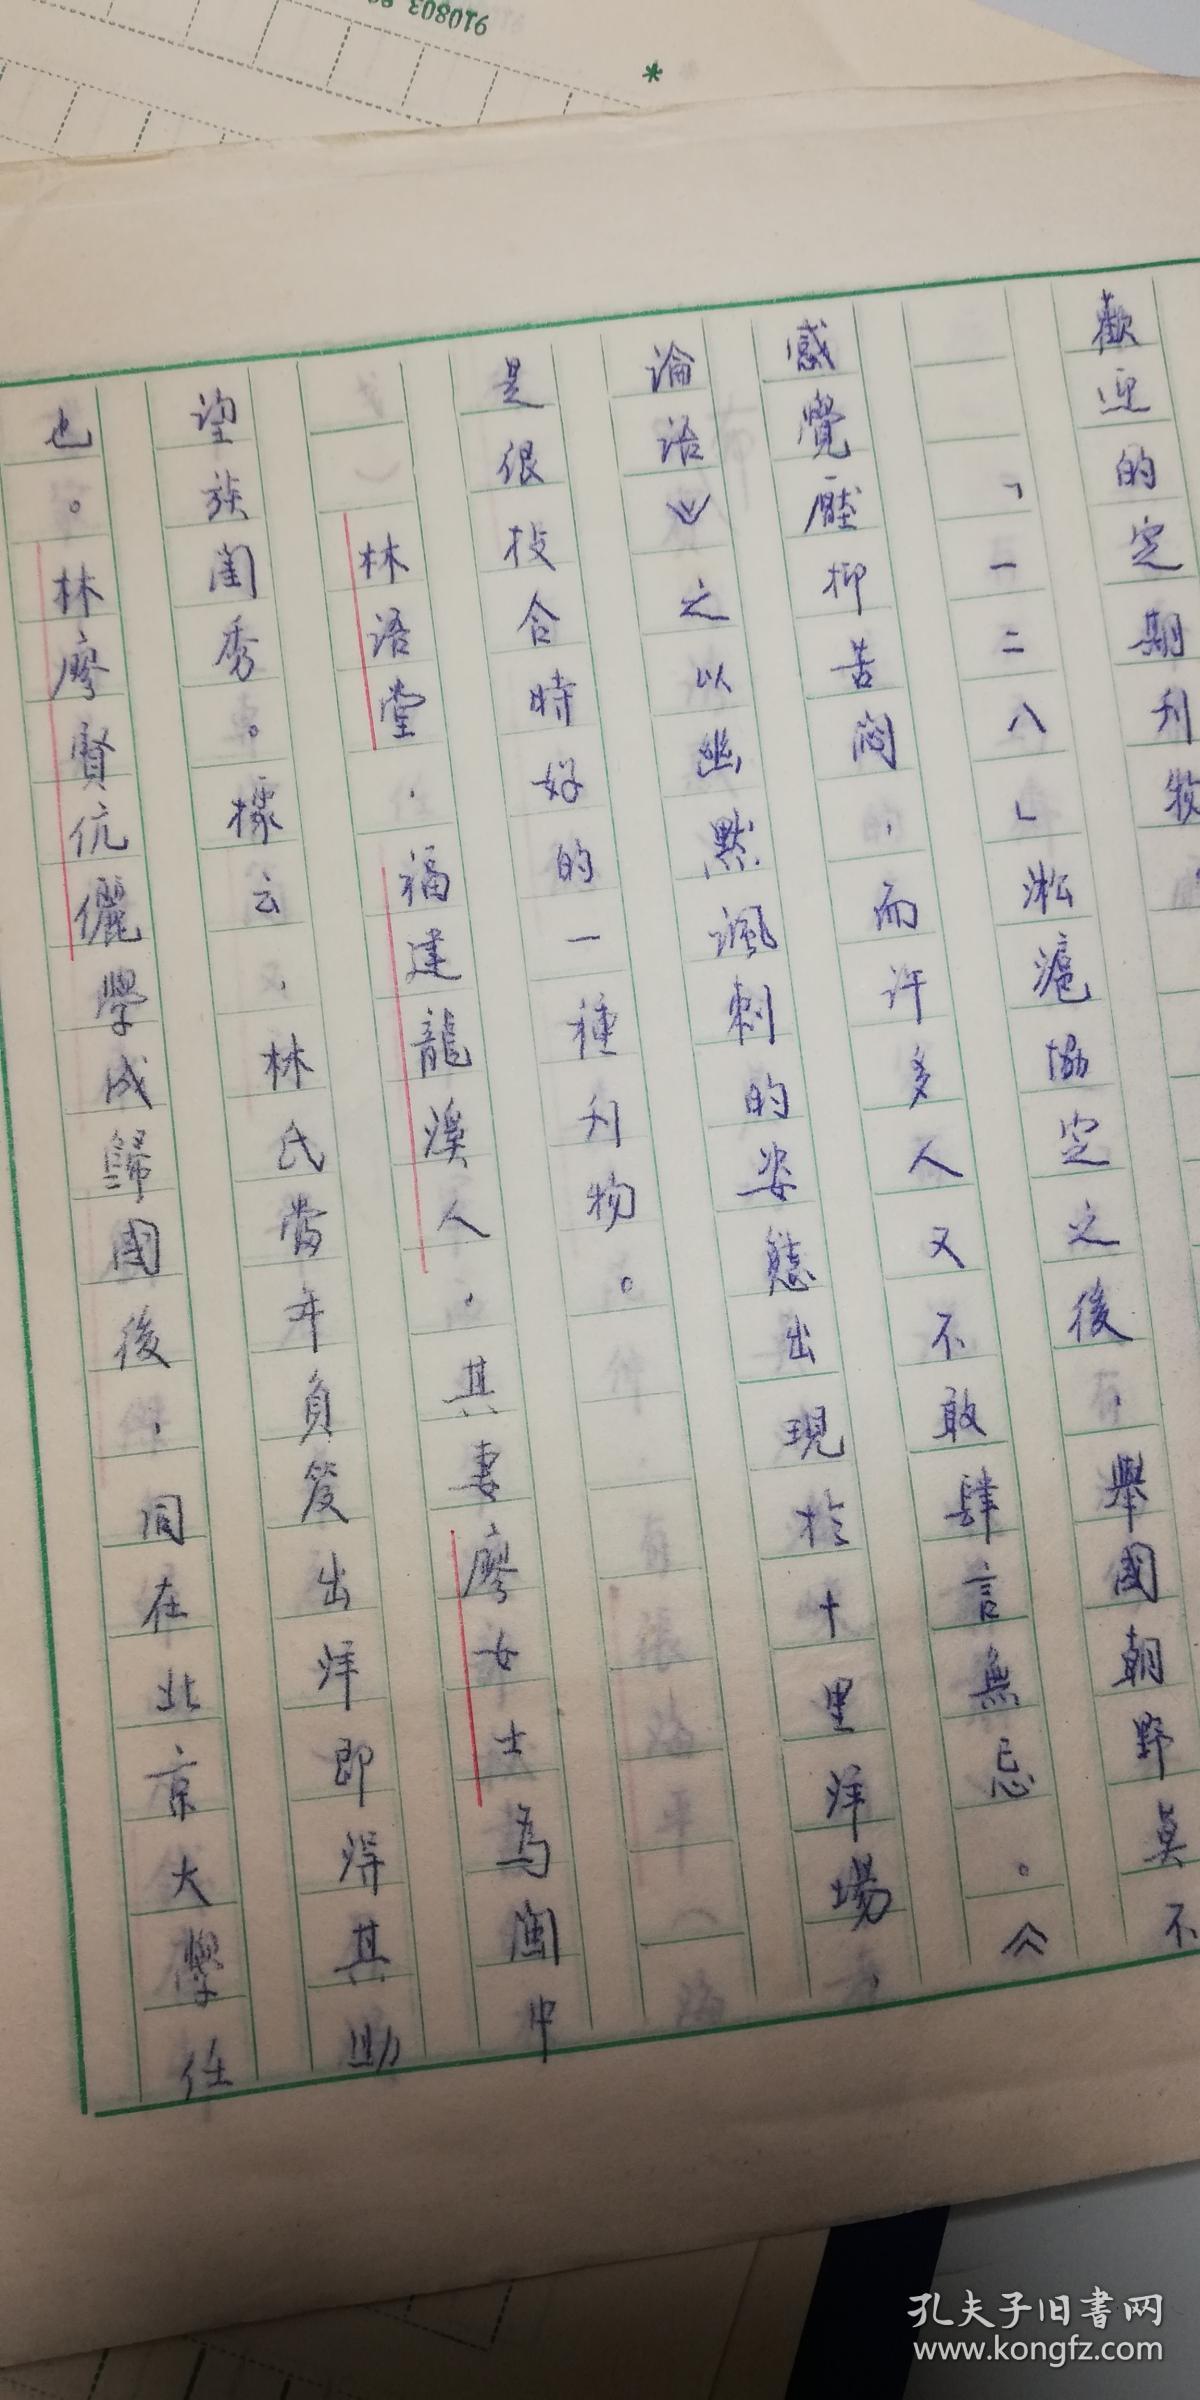 歡迎的定期刊物，
「一二八」淞滬協定之後，舉國朝野莫不
感覺壓抑苦悶，而許多人又不敢肆言無忌。《
論语》之以幽默讽刺的姿態出現於十里洋場，
是很投合時好的一種刊物。
林语堂，福建龍溪人，其妻廖女士為闽中
望族闺秀。據云，林氏當年負笈出洋即得其助
也。林廖賢伉儷學成歸國後，同在北京大學任
910803
*
孔夫子旧書网
www.kongfz.com